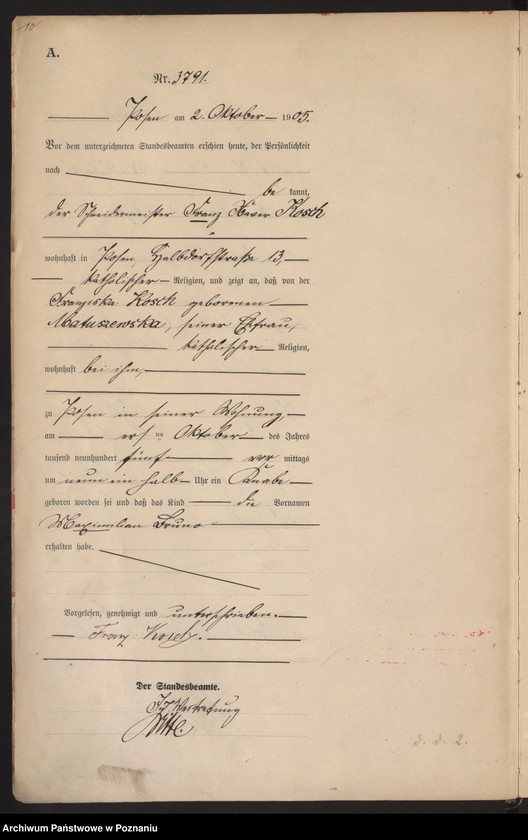 10
A.
Nr. 3791.
Posen am 2. Oktober 1905.
Vor dem unterzeichneten Standesbeamten erschien heute, der Persönlichkeit
nach
be kannt,
der Schneidermeister Franz Xaver Kosch
wohnhaft in Posen Halbdorfstraße 13,
katholischer Religion, und zeigt an, daß von der
Franziska Kosch geborenen
Matuszewska, seiner Ehefrau,
katholischer Religion,
wohnhaft bei ihm,
zu Posen in seiner Wohnung,
am ersten Oktober des Jahres
tausend neunhundert fünf vor mittags
um neun ein halb Uhr ein Knabe
geboren worden sei und daß das Kind die Vornamen
Maximilian Bruno
erhalten habe.
Vorgelesen, genehmigt und unterschrieben.
Franz Kosch.
Der Standesbeamte.
In Vertretung
d. d. 2.
Archiwum Państwowe w Poznaniu